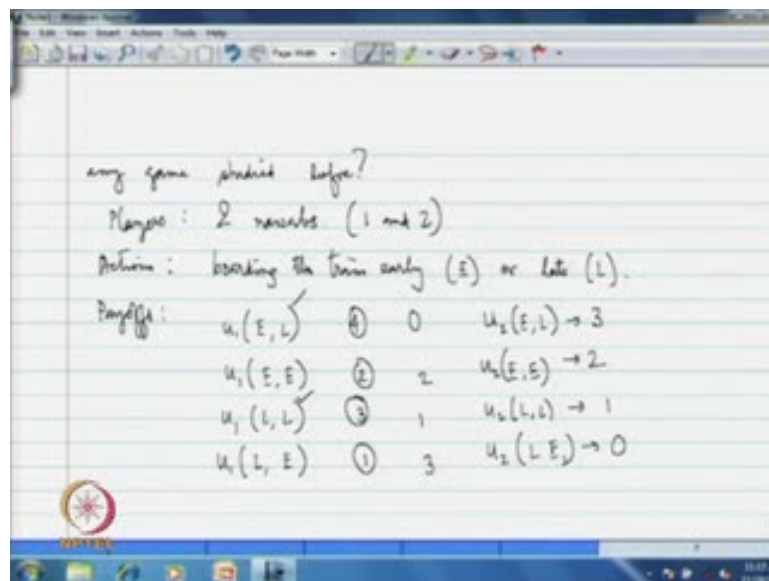 Note1 - Windows Journal
File Edit View Insert Actions Tools Help
Page Width
any game studied before?
Players : 2 (1 and 2)
Actions : boarding the train early (E) or late (L).
Payoffs :
u₁(E, L) ④ 0 u₂(E, L) → 3
u₁(E, E) ② 2 u₂(E, E) → 2
u₁(L, L) ③ 1 u₂(L, L) → 1
u₁(L, E) ① 3 u₂(L E) → 0
NPTEL